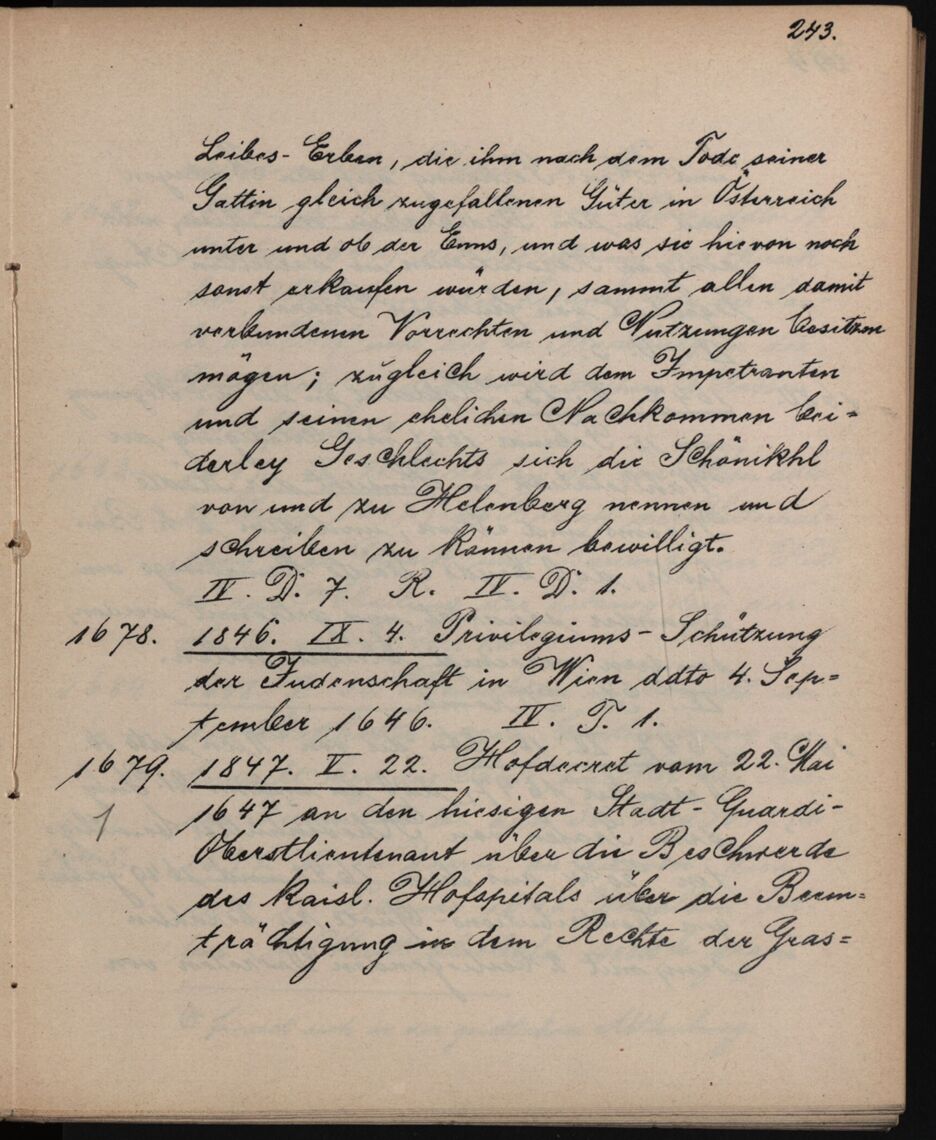 243.
Leibes-Erben, die ihm nach dem Tode seiner
Gattin gleich zugefallenen Güter in Österreich
unter und ob der Enns, und was sie hievon noch
sonst erkaufen würden, sammt allen damit
verbundenen Vorrechten und Nutzungen besitzen
mögen; zugleich wird dem Impetranten
und seinen ehelichen Nachkommen bei=
derley Geschlechts sich die Schönikhl
von und zu Helenberg nennen und
schreiben zu können bewilligt.
IV. D. 7. R. IV. D. 1.
1678. 1846. IX. 4. Privilegiums-Schützung
der Judenschaft in Wien ddto 4. Sep=
tember 1646. IV. T. 1.
1679. 1847. V. 22. Hofdecret vom 22. Mai
1 1647 an den hiesigen Stadt-Guardi-
Oberstlieutenant über die Beschwerde
des kaisl. Hofspitals über die Beein=
trächtigung in dem Rechte der Gras=